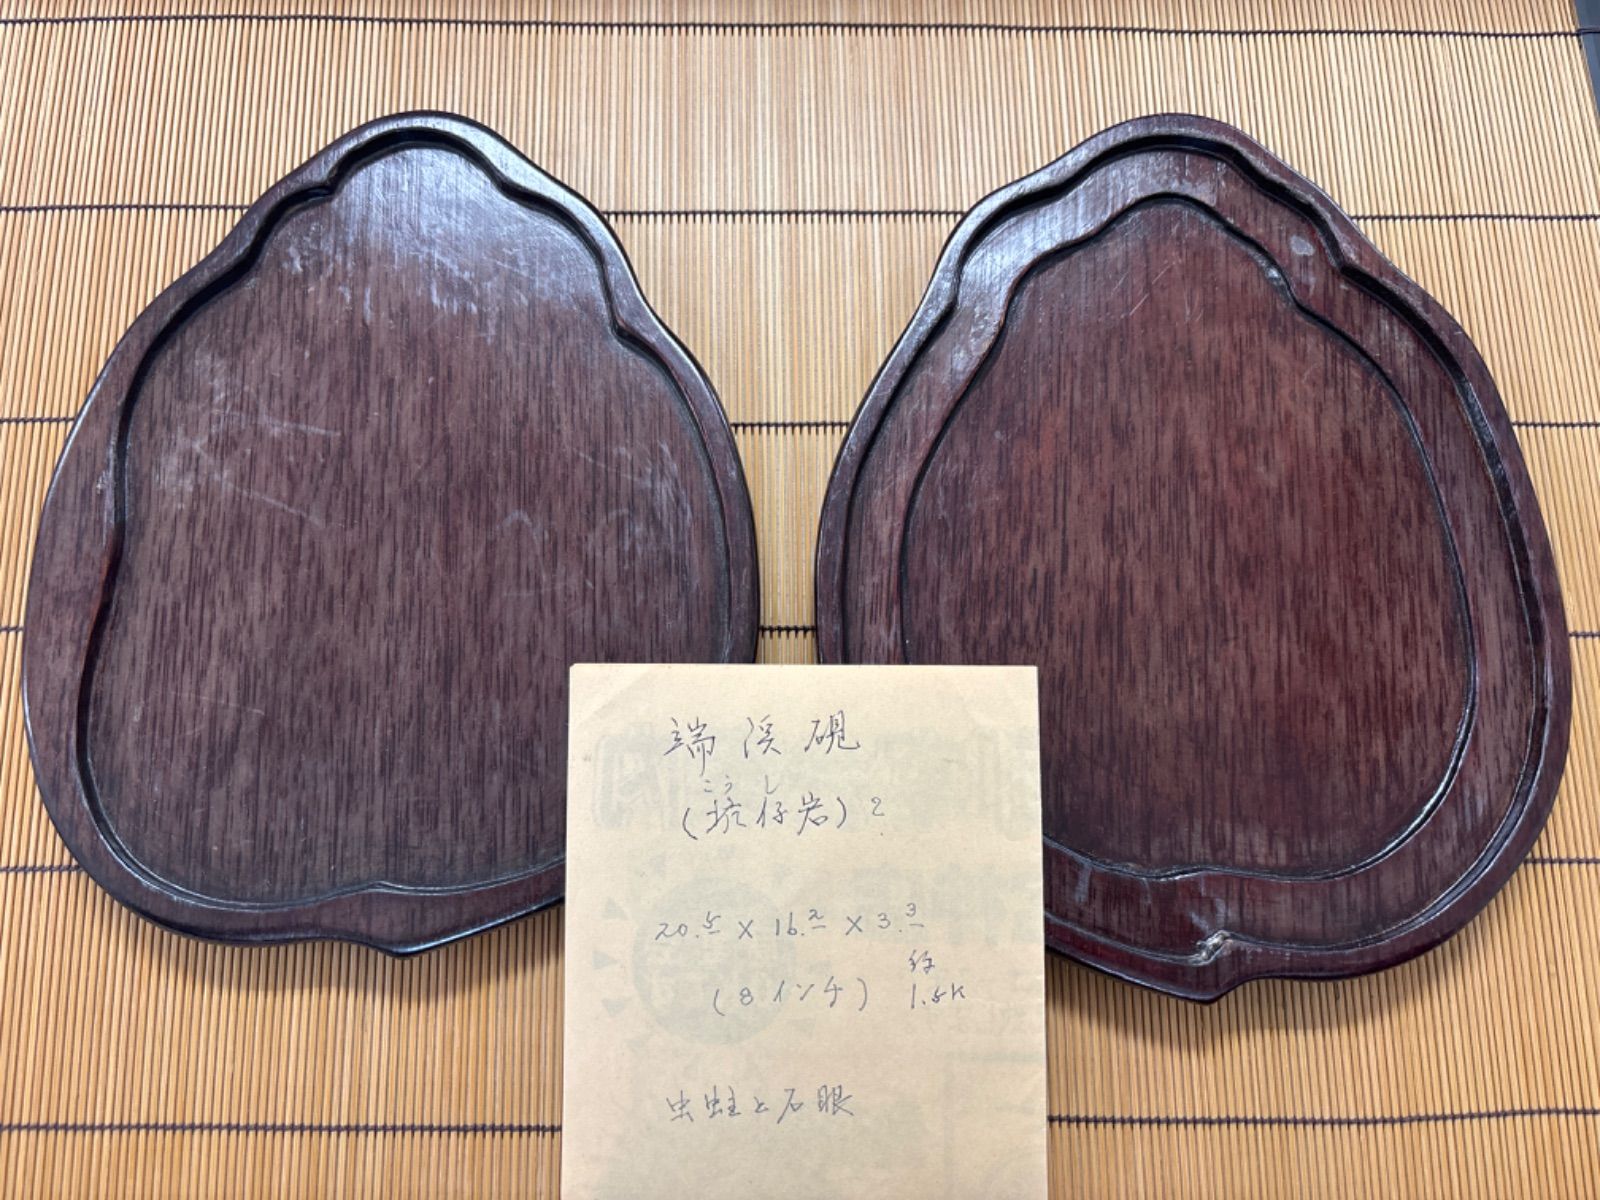 端渓硯
こうし
(坑仔岩)?
20.5 × 16.2 × 3.3
(8インチ) 約
1.5K
虫蛀と石眼